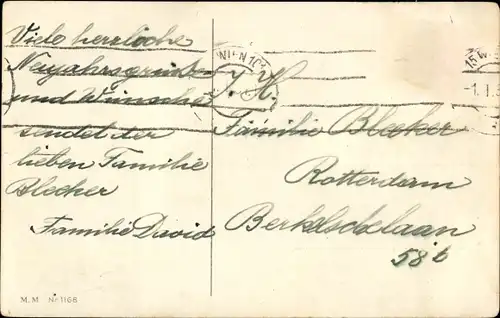 Viele herrliche
Neujahrsgrüsse
und Wünsche
sendet der
lieben Familie
Blecker
Familie David
WIEN 101
T. H.
Familie Blecker
Rotterdam
Berkelschelaan
58 b
15 W
-1. I. 3
M. M Nr. 1168